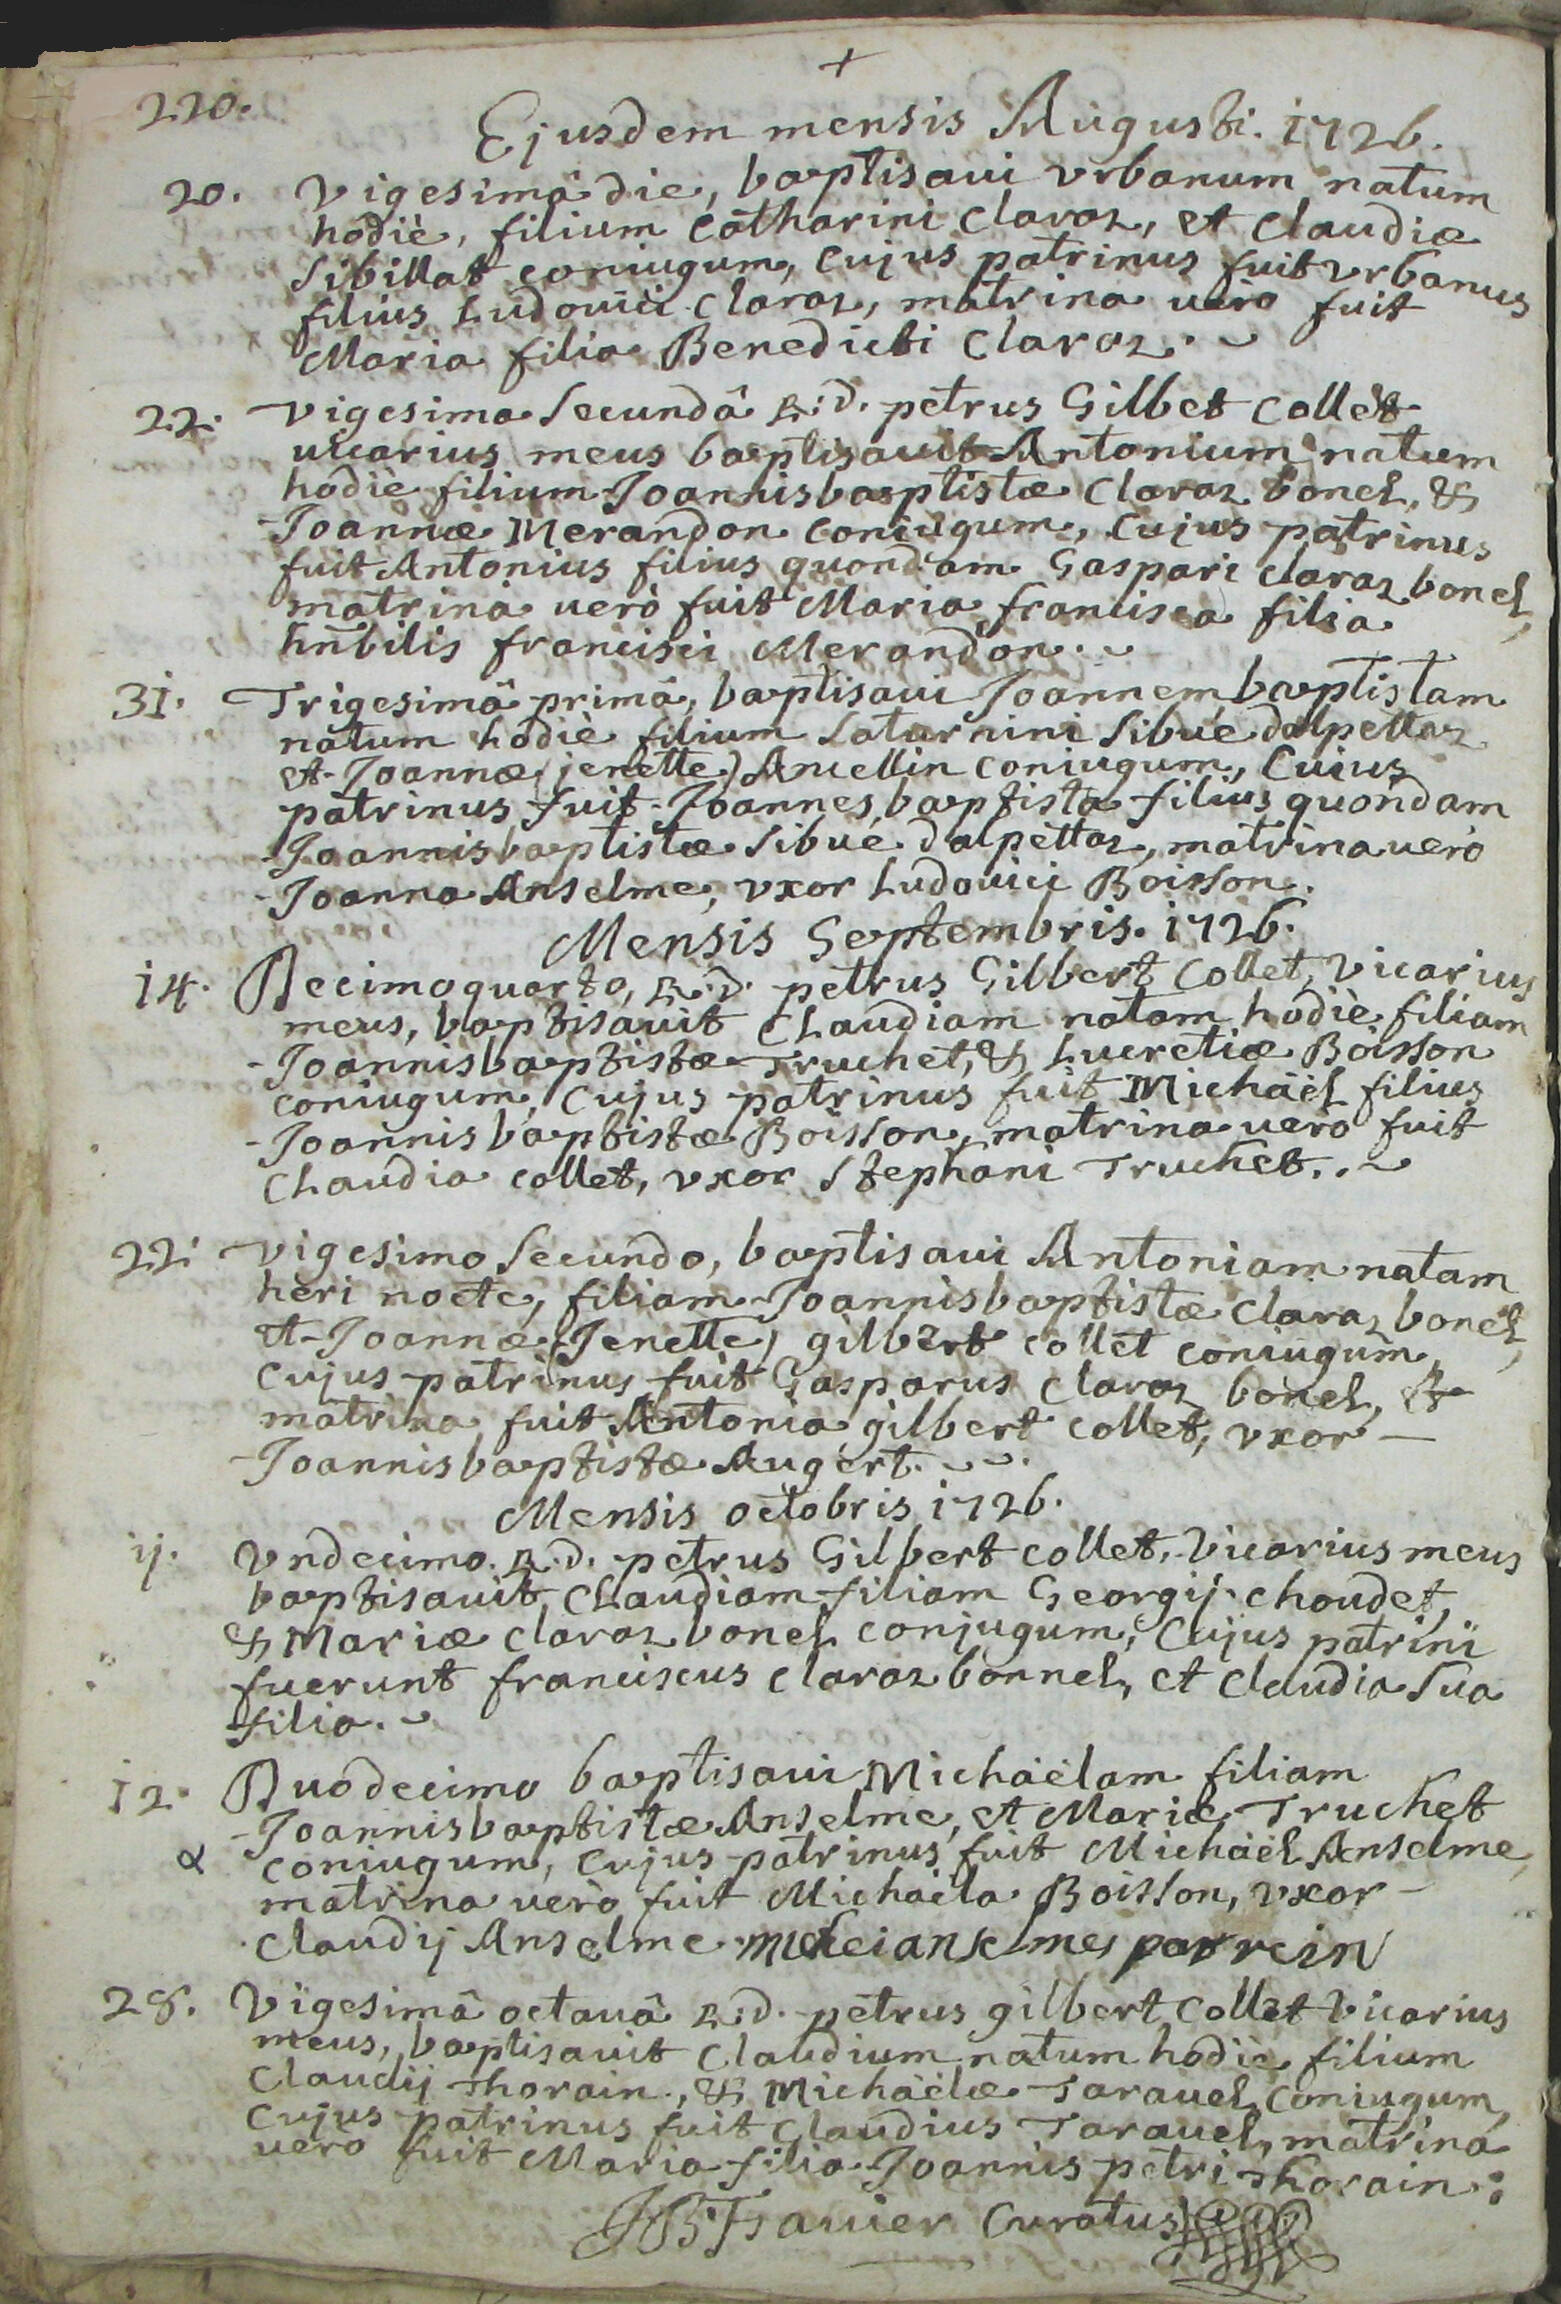 +
220.
Ejusdem mensis Augusti. 1726.
20. Vigesimâ die, baptisaui vrbanum natum
hodiè, filium Catharini Claraz, et Claudiæ
Sibillat coniugum, cujus patrinus fuit vrbanus
filius Ludouici Claraz, matrina uero fuit
Maria filia Benedicti Claraz.
22. Vigesima Secundâ R:d. petrus Gilbet Collét
uicarius meus baptisauit Antonium natum
hodie filium Joannisbaptistæ Claraz bonel, &
Joannæ Merandon coniugum, cujus patrinus
fuit Antonius filius quondam Gaspari claraz bonel,
matrina uerò fuit Maria francisca filia
hnbilis francisci Merandon.
31. Trigesimâ primâ, baptisaui Joannem baptistam
natum hodiè filium Saturnini Sibué dalpettaz
et Joannæ (jenette) Ancellin coniugum, Cuius
patrinus fuit Joannes baptista filius quondam
Joannisbaptistæ Sibué dalpettaz, matrina uerò
Joanna Anselme, vxor Ludouici Boisson.
Mensis Septembris. 1726.
14. Decimoquarto, R:d. petrus Gilbert Collet, Vicarius
meus, baptisauit Claudiam natam hodiè filiam
Joannisbaptistæ Truchet, & Lucretiæ Boisson
coniugum, Cujus patrinus fuit Michaël filius
Joannisbaptistæ Boisson, matrina uero fuit
Claudia collet, vxor Stephani Truchet..
22. Vigesimo Secundo, baptisaui Antoniam natam
heri nocte, filiam Joannisbaptistæ Claraz bonel,
et Joannæ (Jenette) gilbert collet coniugum,
Cujus patrinus fuit Gasparus Claraz bonel, &
matrina fuit Antonia gilbert collet, vxor —
Joannisbaptistæ Augert.
Mensis octobris 1726.
ij. Vndecimo. R:d. petrus Gilbert collet, Vicarius meus
baptisauit, Claudiam filiam Georgij choudet,
& Mariæ claraz bonel conjugum, Cujus patrini
fuerunt franciscus claraz bonnel, et Claudia Sua
filia.
12. Duodecimo baptisaui Michaëlam filiam
Joannisbaptistæ Anselme, et Mariæ Truchet
α coniugum, cujus patrinus fuit Michaël Anselme,
matrina uerò fuit Michaëla Boisson, vxor —
Claudij Anselme. anselmes parrein
28. Vigesimâ octauâ R:d. petrus gilbert Collet Vicarius
meus, baptisauit Claudium natum hodiè filium
Claudij Thorain, & Michaëlæ Tarauel, coniugum,
Cujus patrinus fuit Claudius Tarauel, matrina
uerò fuit Maria filia Joannis petri Thorain:
Curatus